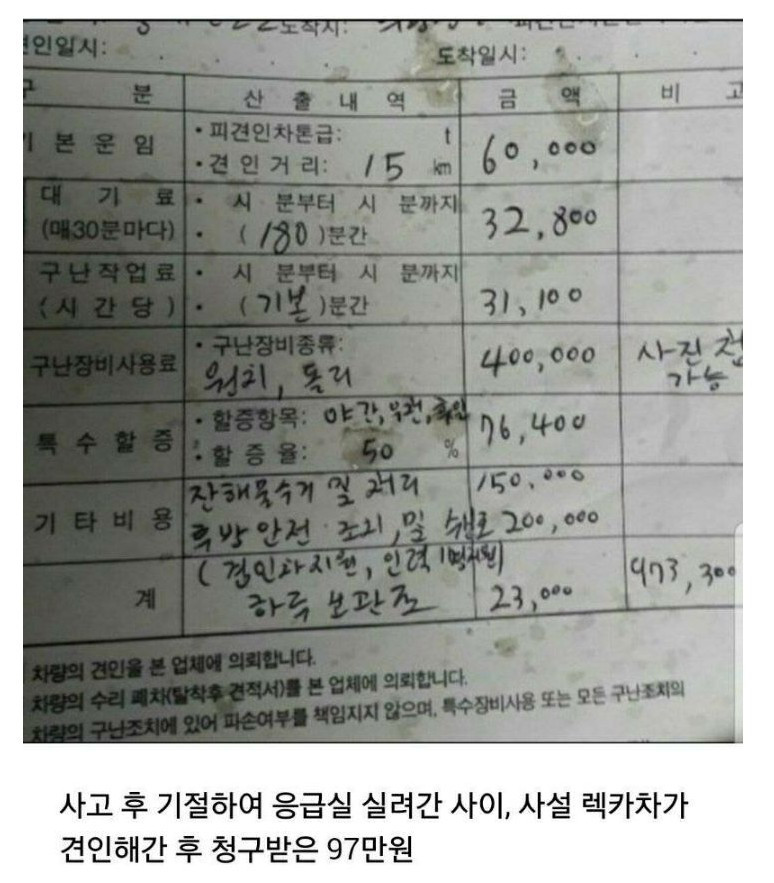 도착지:
견인일시: 도착일시:
구 분 산 출 내 역 금 액 비 고
기 본 운 임 • 피견인차톤급: t 60,000
• 견 인 거 리: 15 km
대 기 료 • 시 분부터 시 분까지 32,800
(매30분마다) • (180)분간
구 난 작 업 료 • 시 분부터 시 분까지 31,100
(시 간 당) • (기본)분간
구난장비사용료 • 구난장비종류: 400,000 사진 첨
윈치, 돌리 가능
특 수 할 증 • 할증항목: 야간, 우천, 휴일 76,400
• 할 증 율: 50 %
기 타 비 용 잔해물수거 및 처리 150,000
후방안전 조치, 및 200,000
(견인차지원, 인력 1명지원) 973,300
계 하루 보관료 23,000
차량의 견인을 본 업체에 의뢰합니다.
차량의 수리 폐차(탈착후 견적서)를 본 업체에 의뢰합니다.
차량의 구난조치에 있어 파손여부를 책임지지 않으며, 특수장비사용 또는 모든 구난조치의
사고 후 기절하여 응급실 실려간 사이, 사설 렉카차가
견인해간 후 청구받은 97만원